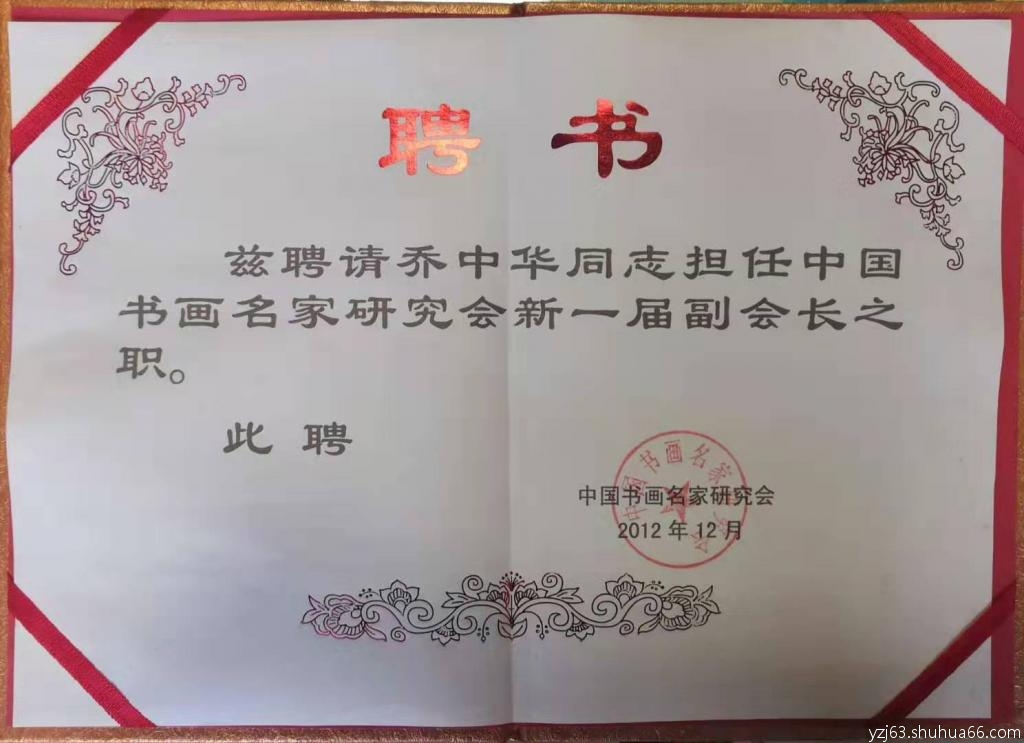 聘书
兹聘请乔中华同志担任中国
书画名家研究会新一届副会长之
职。
此聘
中国书画名家研究会
中国书画名家研究会
2012年12月
yzj63.shuhua66.com